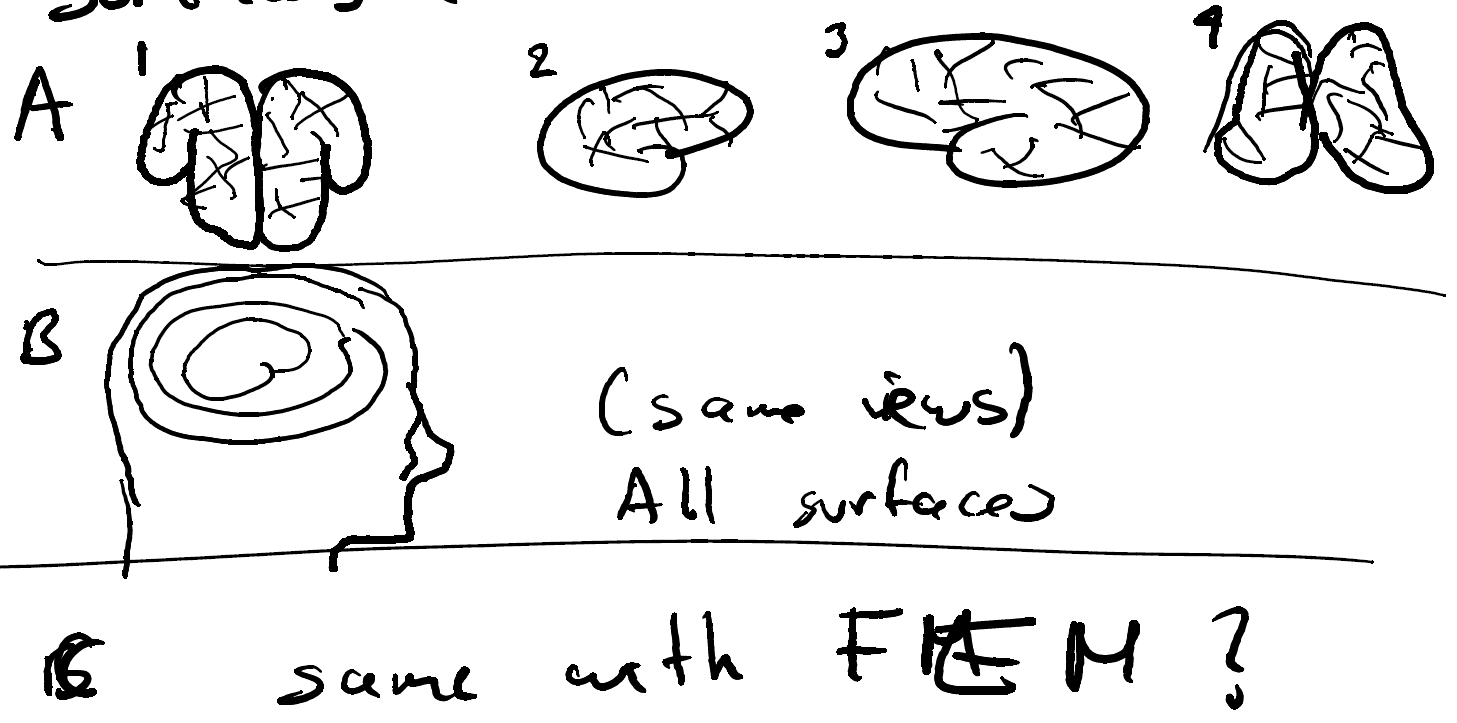 1 2 3 4
A
B
(same views)
All surfaces
C same with FEM ?